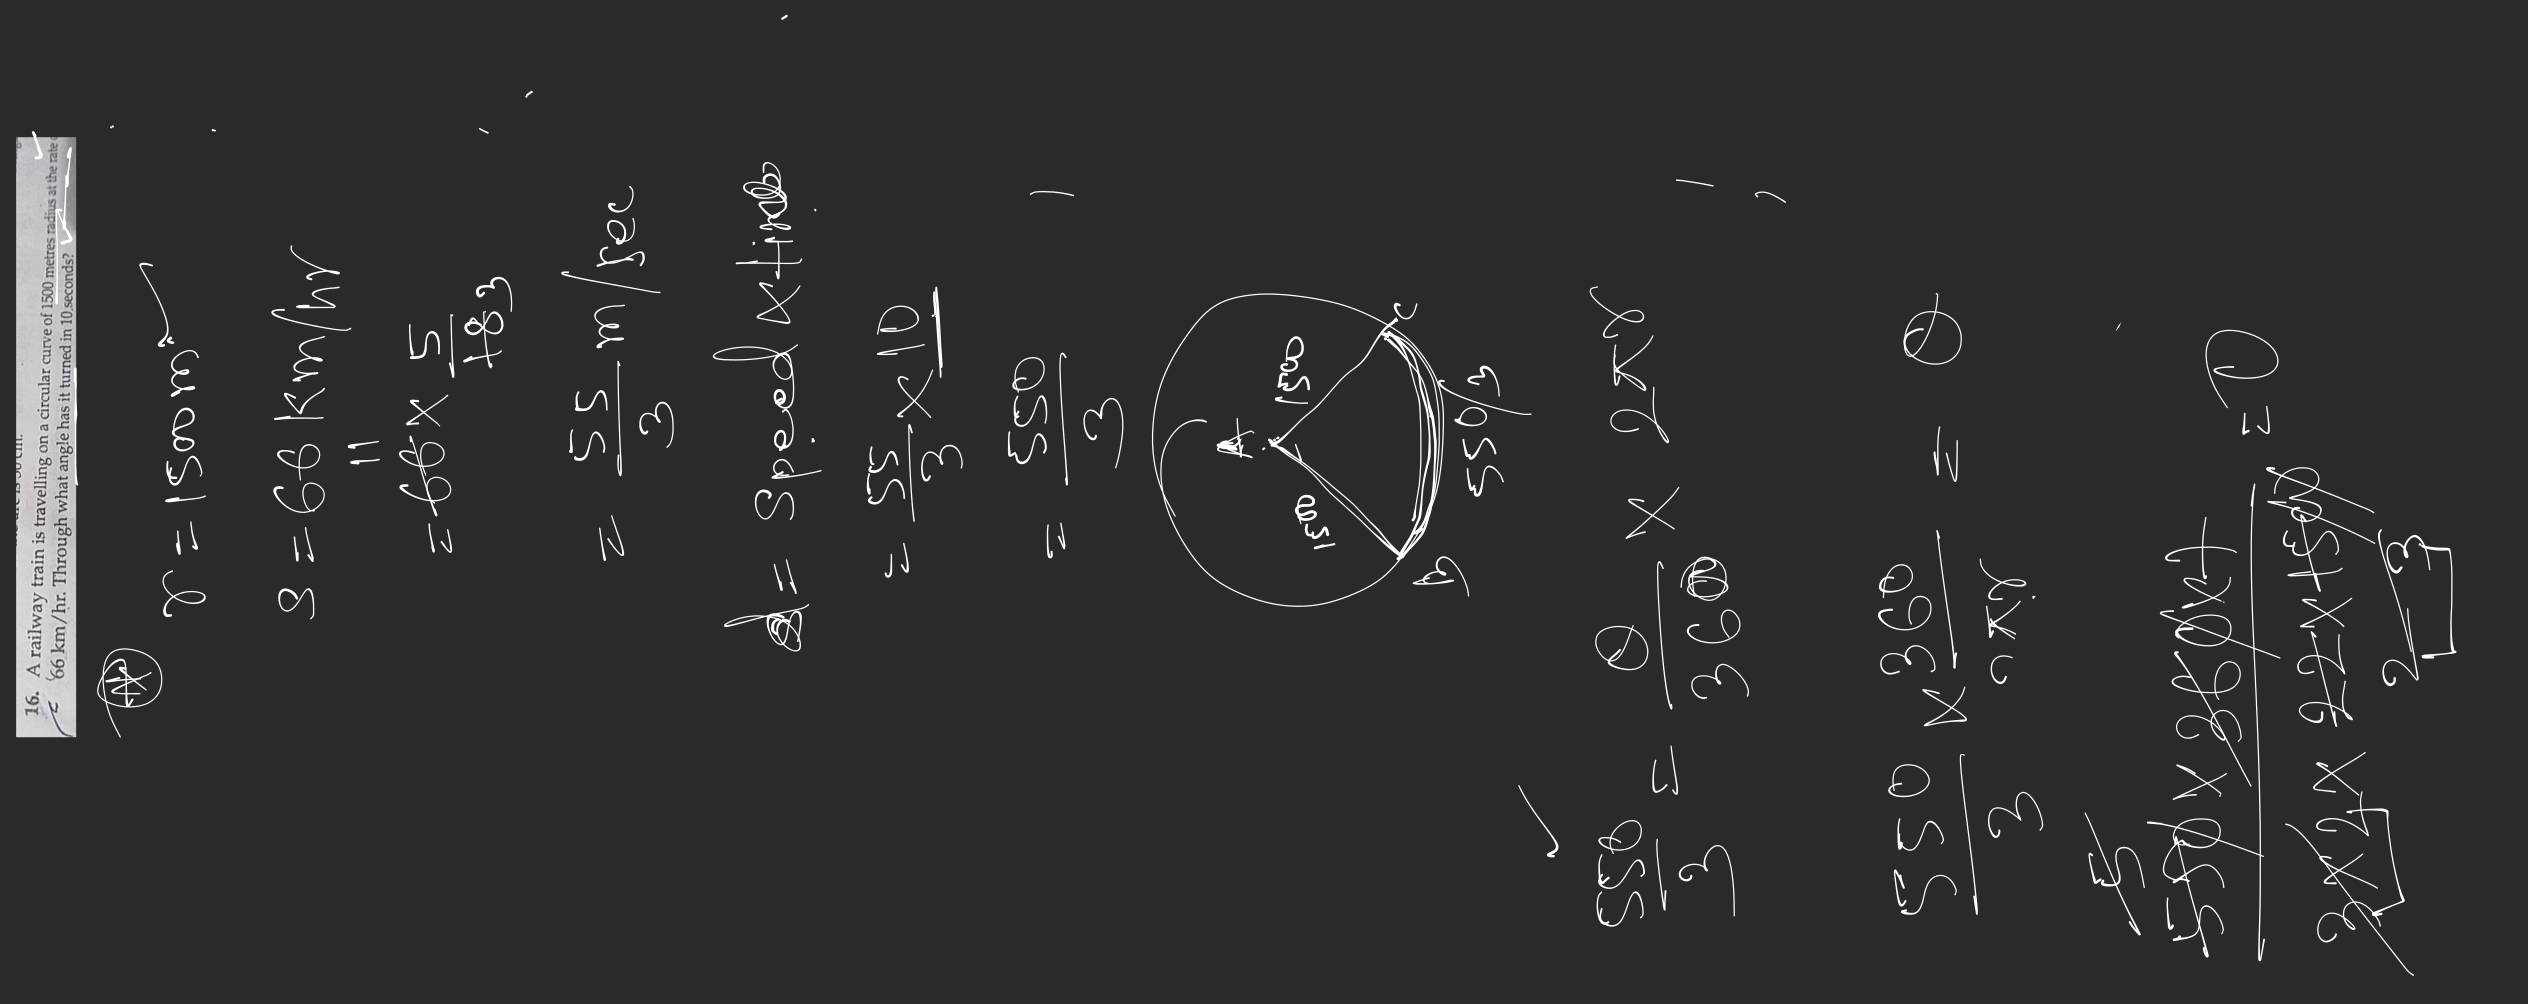 16. A railway train is travelling on a circular curve of 1500 metres radius at the rate
66 km/hr. Through what angle has it turned in 10 seconds?
r = 1500m
S = 66 km/hr
11
= 66 × 5/18 3
= 55/3 m/sec
d = Speed × time
= 55/3 × 10
= 550/3
A
1500
1500
B
C
550/3
550/3 = θ/360 × 2πr
550/3 × 360/2πr = θ
5
550 × 360 × 7 / 3 × 2 × 22 × 1500 = θ
2
3